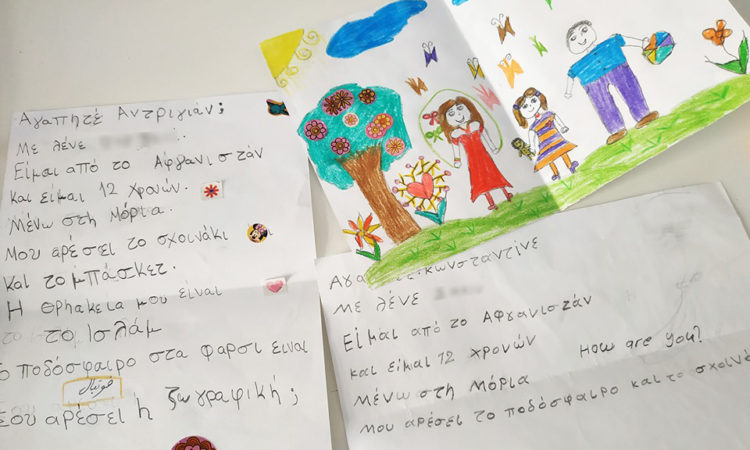 Αγαπητέ Αντριγιάν;
Με λένε
Είμαι από το Αφγανιστάν
και είμαι 12 χρονών.
Μένω στη Μόρια
Μου αρέσει το σχοινάκι
και το μπάσκετ.
Η Θρησκεια μου είναι
το Ισλάμ
ο ποδόσφαιρο στα φαρσι ειναι
فوتبال
Σου αρέσει ή ζωγραφική;
Αγα Κωνσταντίνε
με λένε
Είμαι από το Αφγανιστάν
και είμαι 12 χρονών
How are you?
Μένω στη Μόρια
μου αρέσει το ποδόσφαιρο και το σχοινά